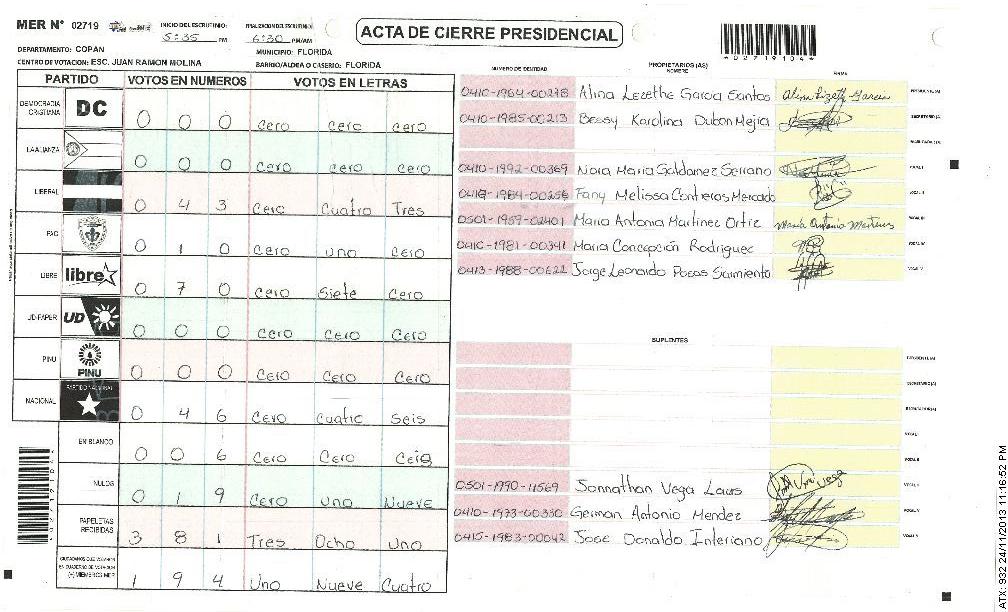 MER N° 02719
INICIO DEL ESCRUTINIO: 5:35 PM
FINALIZACION DEL ESCRUTINIO: 6:30 PM/AM
ACTA DE CIERRE PRESIDENCIAL
*02719104*
DEPARTAMENTO: COPAN
MUNICIPIO: FLORIDA
CENTRO DE VOTACION: ESC. JUAN RAMON MOLINA
BARRIO/ALDEA O CASERIO: FLORIDA
PARTIDO VOTOS EN NUMEROS VOTOS EN LETRAS
DEMOCRACIA CRISTIANA DC 0 0 0 cero cero cero
LA ALIANZA 0 0 0 cero cero cero
LIBERAL 0 4 3 Cero Cuatro Tres
PAC 0 1 0 Cero uno Cero
LIBRE libre 0 7 0 Cero Siete Cero
UD-FAPER UD 0 0 0 Cero Cero Cero
PINU PINU 0 0 0 Cero Cero Cero
NACIONAL PARTIDO NACIONAL 0 4 6 Cero Cuatro Seis
EN BLANCO 0 0 6 Cero Cero
NULOS 0 1 9 Cero Uno Nueve
PAPELETAS RECIBIDAS 3 8 1 Tres Ocho Uno
CIUDADANOS QUE VOTARON EN CUADERNO DE VOTACION (+) MIEMBROS MER 1 9 4 Uno Nueve Cuatro
NUMERO DE IDENTIDAD
PROPIETARIOS (AS)
NOMBRE
FIRMA
0410-1964-00278 Alina Lezethe Garcia Santos Alina Lizeth Garcia PRESIDENTE (A)
0410-1985-00213 Bessy Karolina Dubon Mejia SECRETARIO (A)
ESCRUTADOR (A)
0410-1992-00369 Nora Maria Galdamez Serrano VOCAL I
Fany Melissa Contreras Mercado VOCAL II
0501-1957-02401 Maria Antonia Martinez Ortiz Maria Antonia Martinez VOCAL III
0410-1981-00341 Maria Concepción Rodriguez VOCAL IV
0413-1988-00622 Jorge Leonardo Posas Sarmiento VOCAL V
SUPLENTES
PRESIDENTE (A)
SECRETARIO (A)
ESCRUTADOR (A)
VOCAL I
VOCAL II
0501-1990-11569 Jonnathan Vega VOCAL III
0410-1973-00350 German Antonio Mendez VOCAL IV
0415-1983-00042 Jose Donaldo Interiano VOCAL V
ATX: 932 24/11/2013 11:16:52 PM